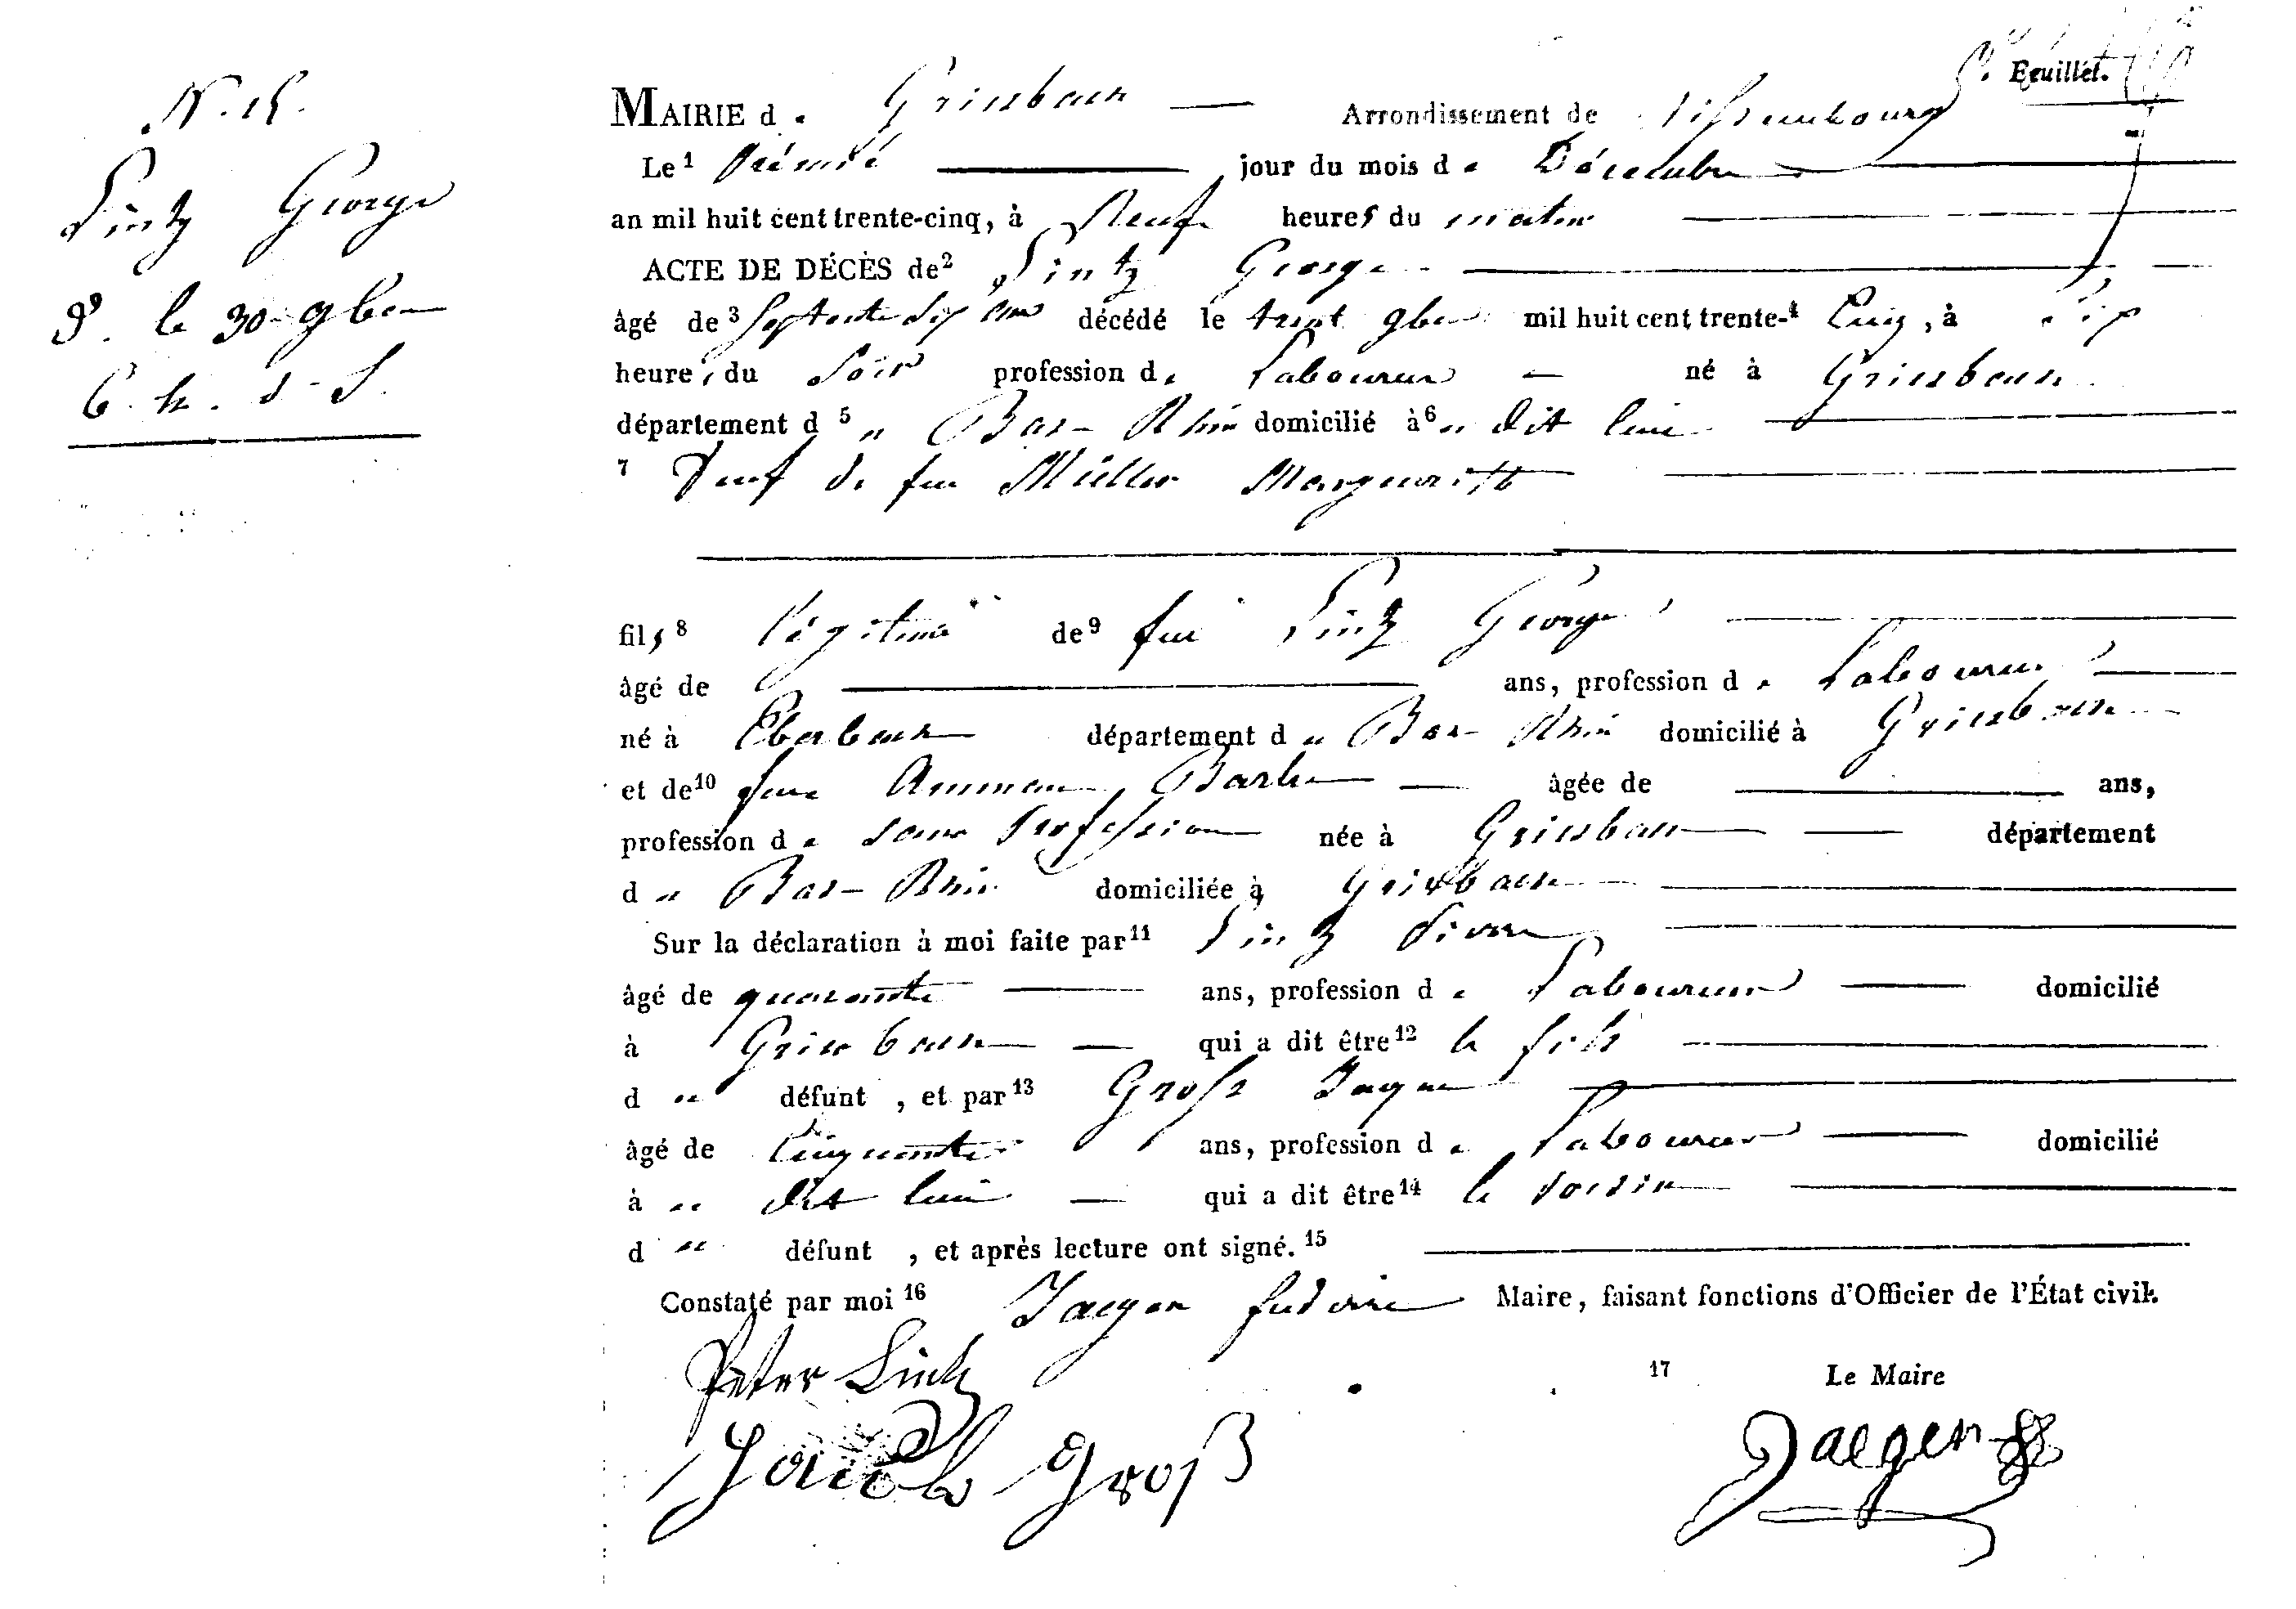 N. 15.
Sintz George
d. le 30 9bre
6. h. d. S.
Feuillet.
MAIRIE de Griesbach — Arrondissement de Wissembourg
Le 1 prémié jour du mois de Décembre
an mil huit cent trente-cinq, à Neuf heures du matin
ACTE DE DÉCÈS de 2 Sintz George
âgé de 3 Septente ans décédé le trent 9bre mil huit cent trente- 4 Cinq, à Six
heures du Soir profession de Laboureur — né à Griesbach
département d 5 u Bas-Rhin domicilié à 6 u dit lieu
7 Veuf de feu Müller Margueritte
fils 8 légitime de 9 feu Sintz George
âgé de ans, profession de Laboureur
né à Eberbach département du Bas-Rhin domicilié à Griesbach
et de 10 feue Amman Barbe — âgée de ans,
profession de sans Profession née à Griesbach — département
du Bas-Rhin domiciliée à Griesbach
Sur la déclaration à moi faite par 11 Sintz Pierre
âgé de quarante — ans, profession de Laboureur — domicilié
à Griesbach — qui a dit être 12 le fils
du défunt, et par 13 Gross Jaques
âgé de Cinquante ans, profession de Laboureur — domicilié
à u dit lieu — qui a dit être 14 le voisin
du défunt, et après lecture ont signé. 15
Constaté par moi 16 Jaeger Maire, faisant fonctions d'Officier de l'État civil.
Peter Sintz
17 Le Maire
Jacob Groß
Jaeger